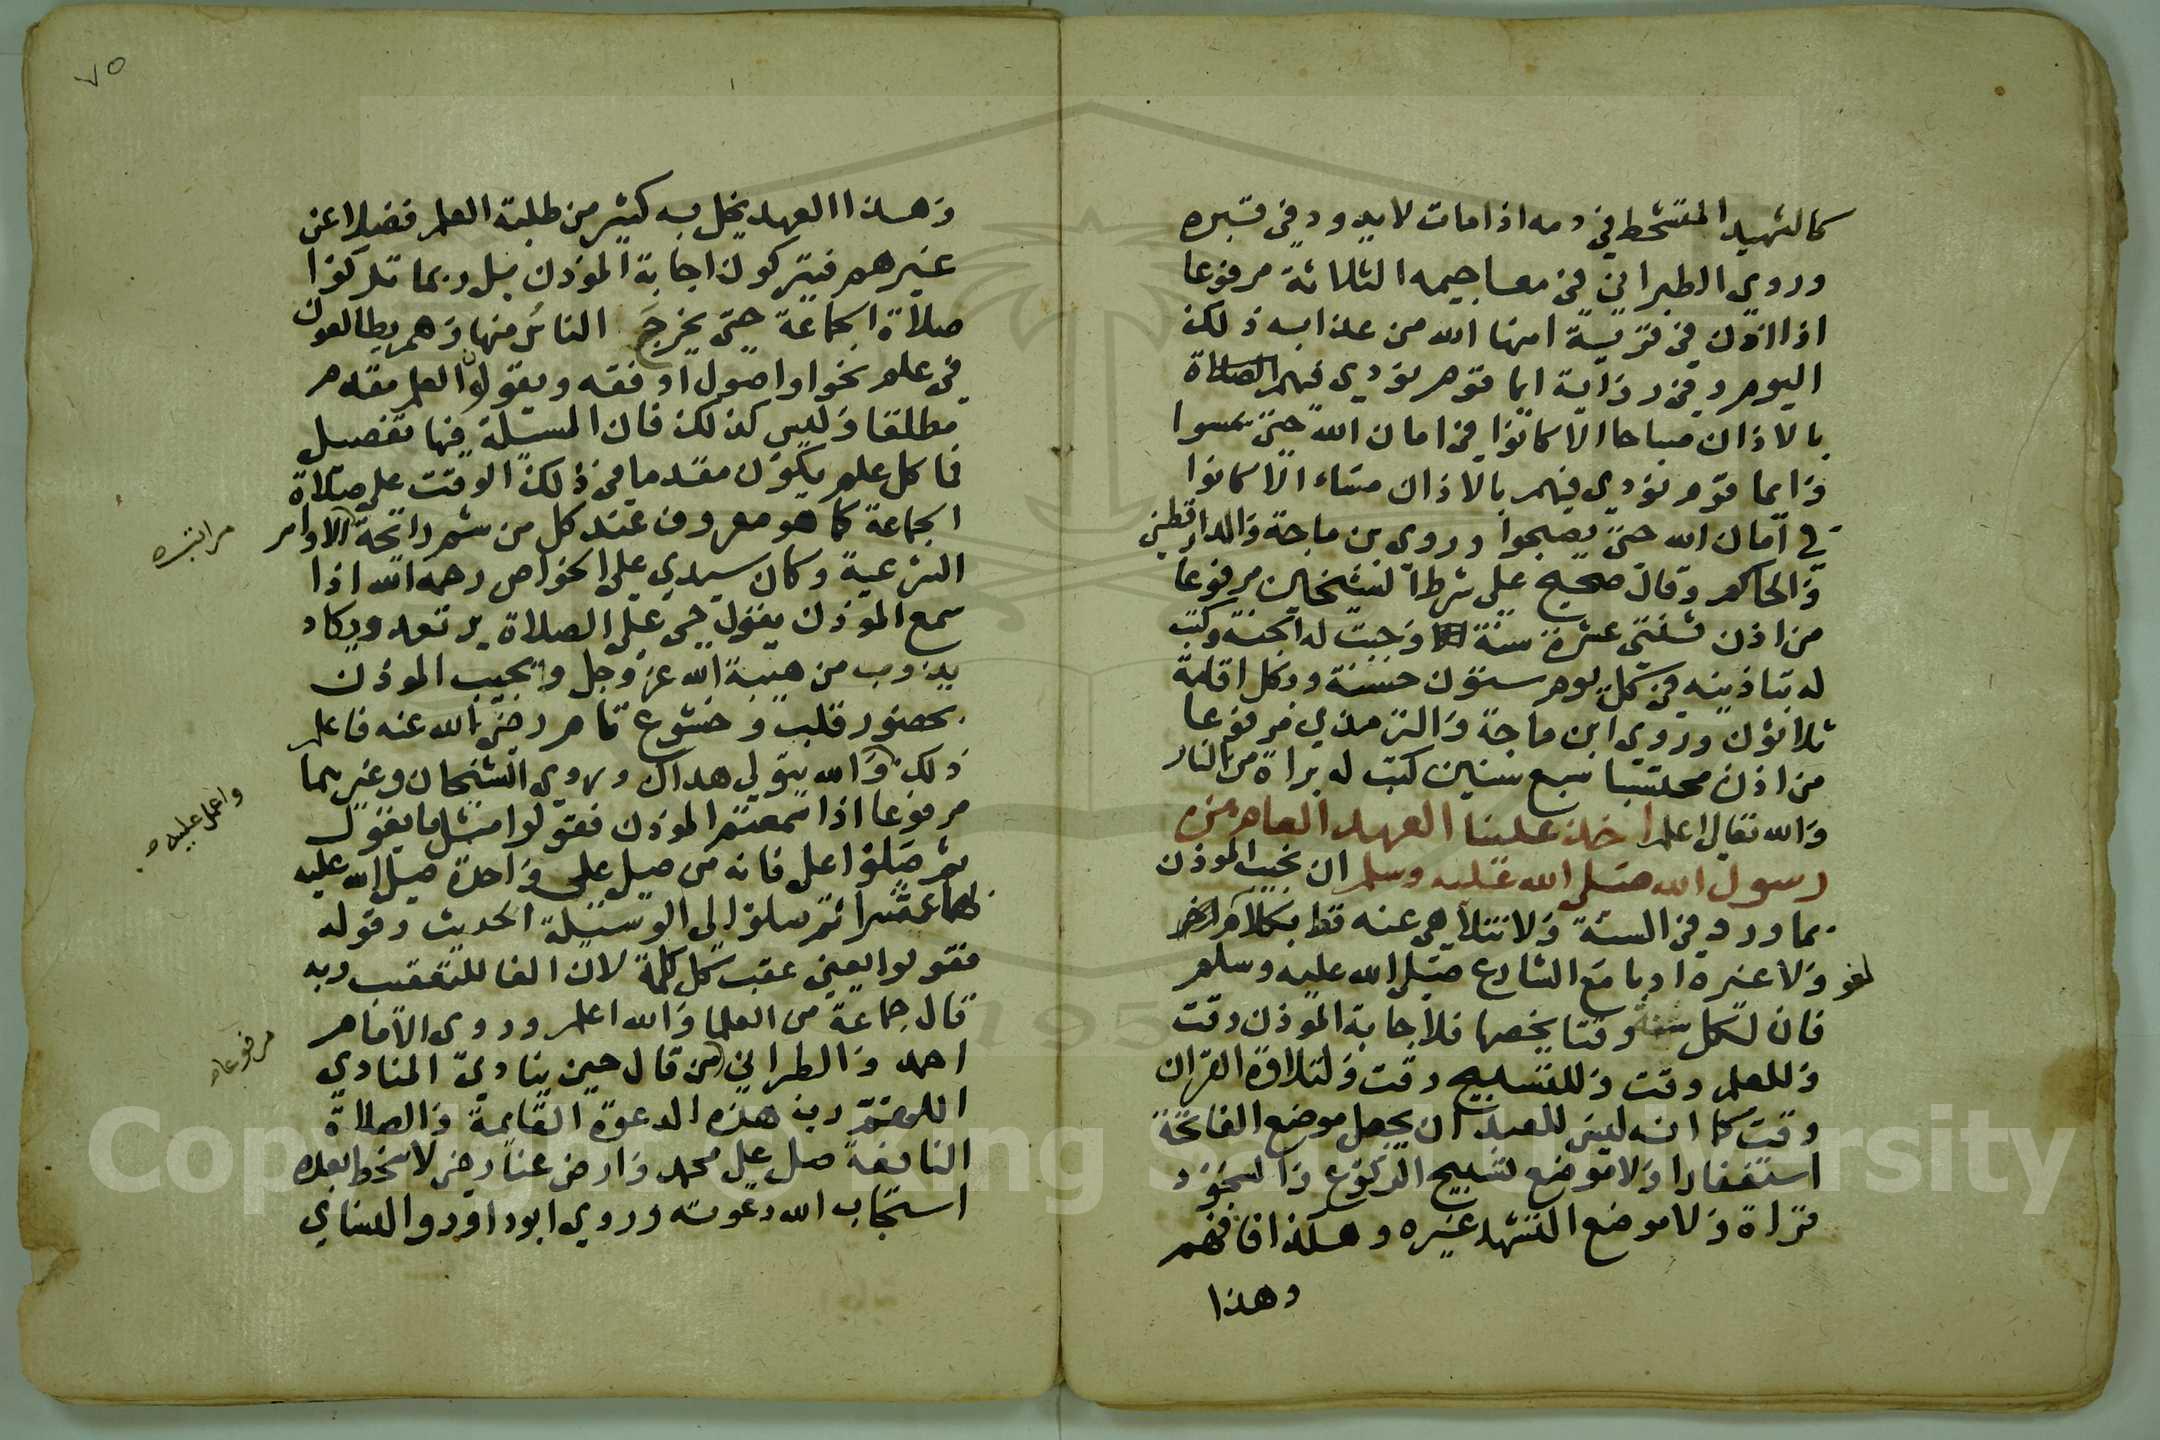 كالشهيد المتشحط في دمه اذا مات لا يدود في قبره
وروي الطبراني في معاجيمه الثلاثة مرفوعا
اذا اذن في قرية امنها الله من عذابه ذلك
اليوم وفي رواية ايما قوم نودي فيهم الصلاة
بالاذان صباحا الا كانوا في امان الله حتى يمسوا
وايما قوم نودي فيهم بالاذان مساء الا كانوا
في امان الله حتى يصبحوا وروي بن ماجة والدارقطني
والحاكم وقال صحيح على شرط الشيخين مرفوعا
من اذن ثنتى عشرة سنة وجبت له الجنة وكتب
له بتاذينه في كل يوم ستون حسنة وبكل اقامة
ثلاثون وروي ابن ماجة والترمذي مرفوعا
من اذن محتسبا سبع سنين كتب له براة من النار
والله تعالى اعلم اخذ علينا العهد العام من
رسول الله صلى الله عليه وسلم ان نجيب الموذن
بما ورد في السنة ولا نتلاهى عنه قط بكلام
لغو ولا غيره ادبا مع الشارع صلى الله عليه وسلم
فان لكل سنة وقتا يخصها فلاجابة الموذن وقت
وللعلم وقت وللتسبيح وقت ولتلاوة القران
وقت كما انه ليس للعبد ان يجعل موضع الفاتحة
استغفارا ولا موضع تسبيح الركوع والسجود
قراة ولا موضع التشهد غيره وهكذا فافهم
وهذا
٧٥
وهذا العهد يخل به كثير من طلبة العلم فضلا عن
غيرهم فيتركون اجابة الموذن بل ربما تركوا
صلاة الجماعة حتى يخرج الناس منها وهم يطالعون
في علم نحو او اصول او فقه ويقولون العلم مقدم
مطلقا وليس كذلك فان المسئلة فيها تفصيل
فما كل علم يكون مقدما في ذلك الوقت على صلاة
الجماعة كما هو معروف عند كل من شم رائحة الاوامر
مراتب
الشرعية وكان سيدي علي الخواص رحمه الله اذا
سمع الموذن يقول حي على الصلاة يرتعد ويكاد
يذوب من هيبة الله عز وجل ويجيب الموذن
بحضور قلب وخشوع تام رضي الله عنه فاعلم
ذلك والله يتولى هداك وروي الشيخان وغيرهما
واعمل عليه
مرفوعا اذا سمعتم الموذن فقولوا مثل ما يقول
ثم صلوا على فانه من صلى على واحدة صلى الله عليه
بها عشرا ثم سلوا لى الوسيلة الحديث وقوله
فقولوا يعني عقب كل كلمة لان الفا للتعقيب وبه
قال جماعة من العلما والله اعلم وروي الامام
احمد والطبراني من قال حين ينادي المنادي
مرفوعا
اللهم رب هذه الدعوة القايمة والصلاة
النافعة صل على محمد وارض عنا رضى لا سخط بعده
استجاب الله دعوته وروي ابو داود والنساي
Copyright © King Saud University